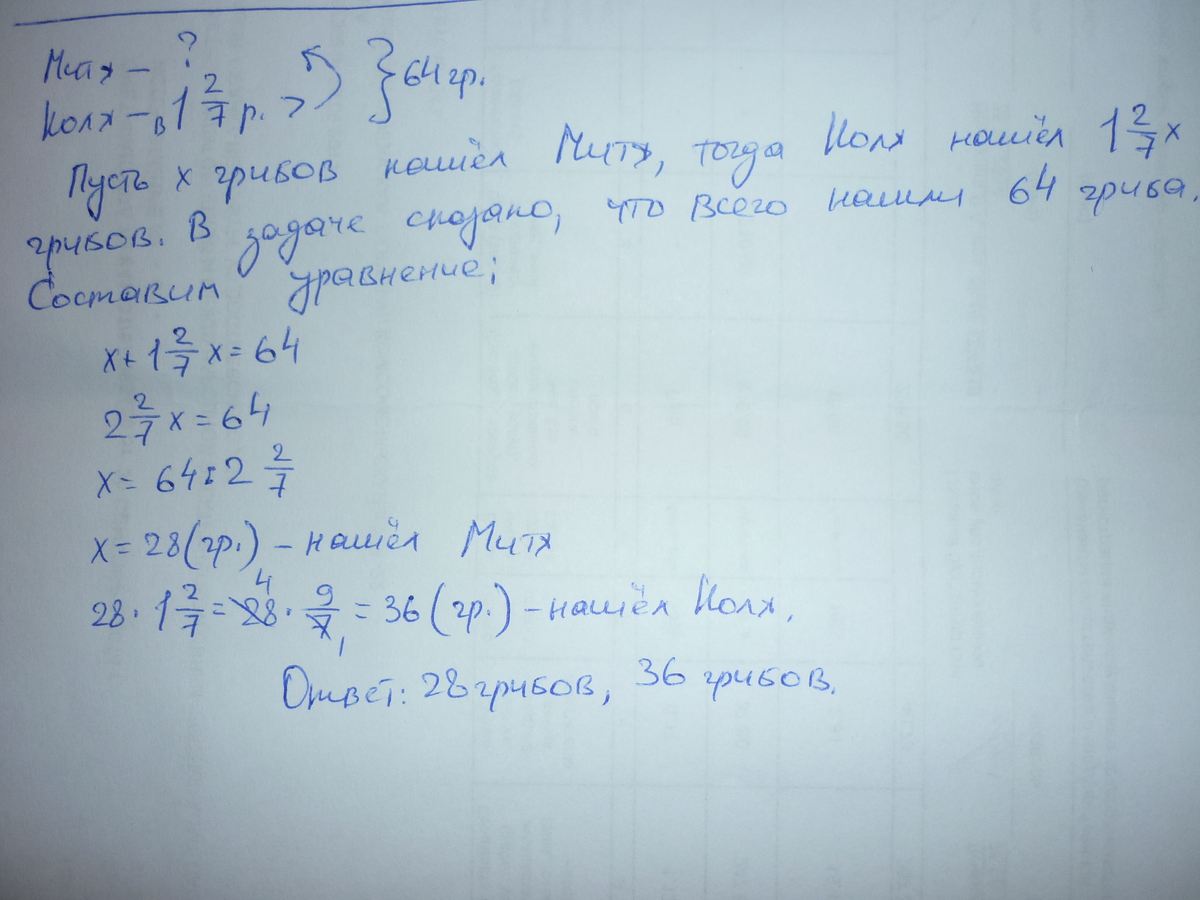 Митя – ?
Коля – в 1 2/7 р. > } 64 гр.
Пусть x грибов нашёл Митя, тогда Коля нашёл 1 2/7 x
грибов. В задаче сказано, что всего нашли 64 гриба.
Составим уравнение:
x + 1 2/7 x = 64
2 2/7 x = 64
x = 64 : 2 2/7
x = 28 (гр.) – нашёл Митя
28 · 1 2/7 = 28 4 · 9/7 1 = 36 (гр.) – нашёл Коля.
Ответ: 28 грибов, 36 грибов.